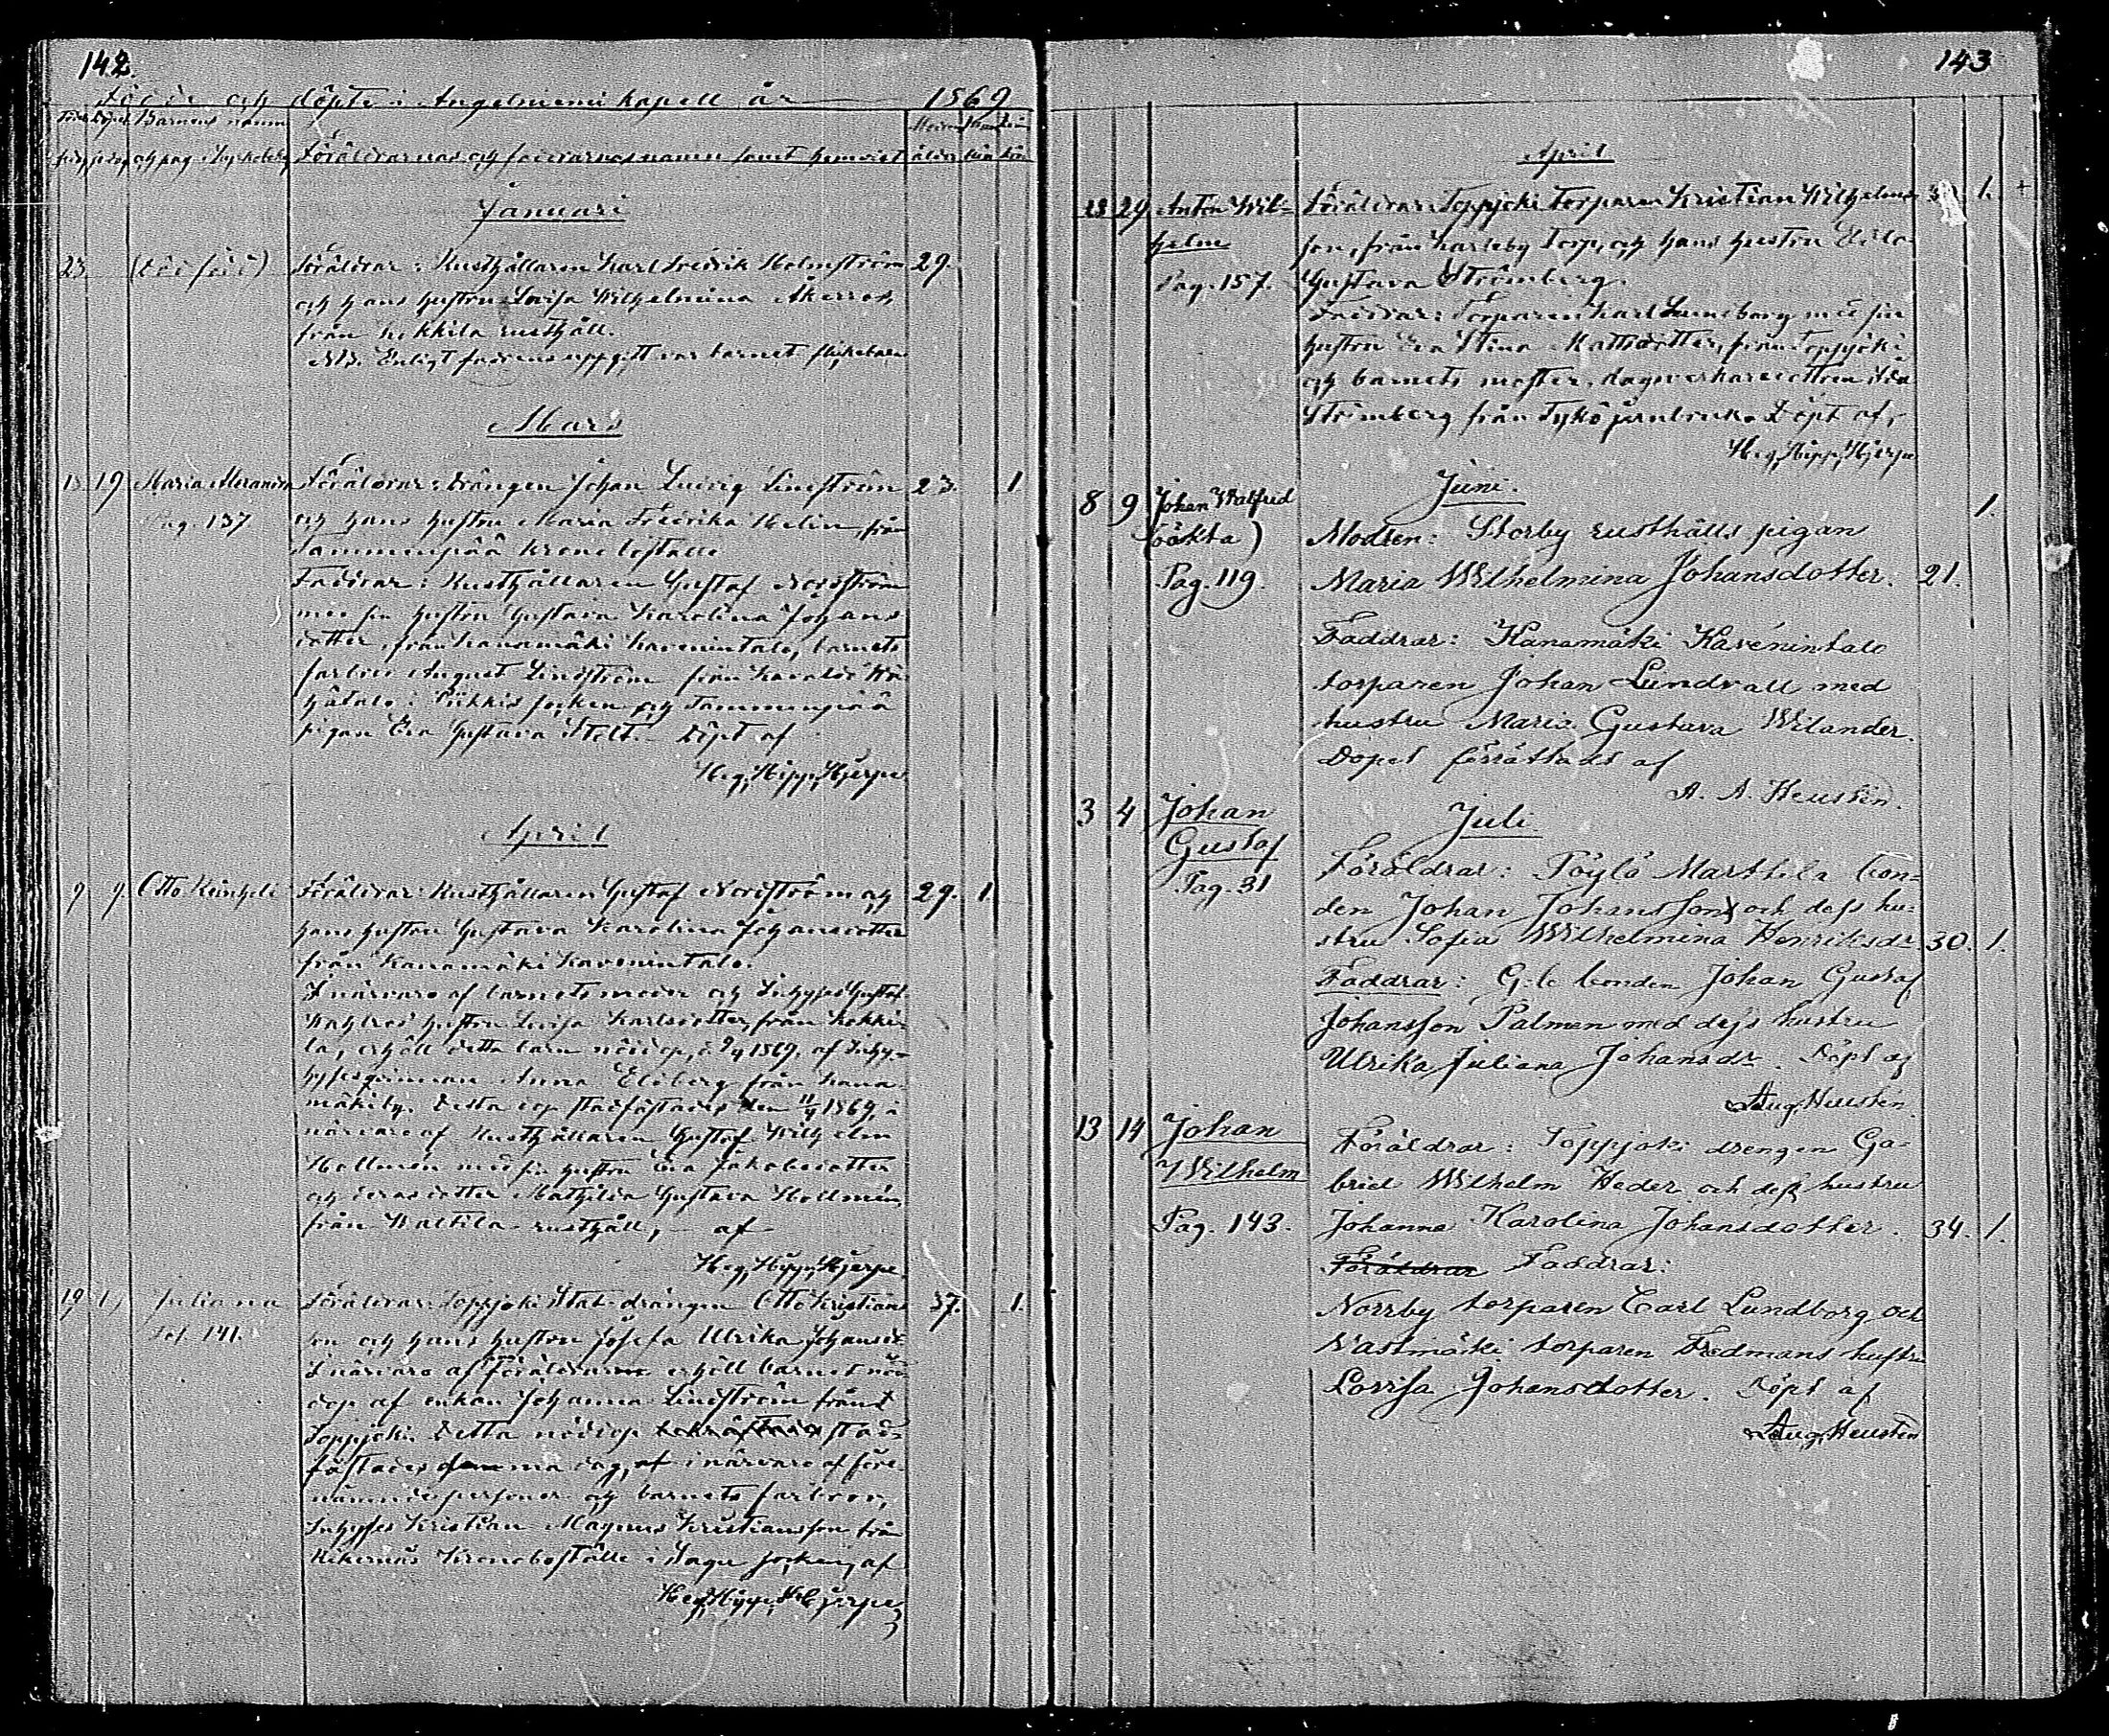 142.
Födde och döpte i Angelniemi kapell år 1869
Barnens namn
och pag. i kyrkobok Föräldrarnas och faddrarnes namn samt hemvist ålder kön kön
Januari
23 (död född) Föräldrar: Rusthållaren Karl Fredrik Holmström 29.
och hans hustru Lovisa Wilhelmina Akerros
från Kokkila rusthåll.
NB. Enligt fadrens uppgift var barnet flickebarn
Mars
18 19 Maria Miranda Föräldrar: Drängen Johan Ludvig Lindström 23. 1
Pag. 137 och hans hustru Maria Fredrika Helin, från
Tammenpää Kronoboställe
Faddrar: Rusthållaren Gustaf Nordström
med sin hustru Gustava Karolina Johans
dotter, från Kanamäki Kavenintalo, barnets
farbror August Lindström från
hätalo i Piikkis socken och Tammenpää
pigan Eva Gustava Stolt. Döpt af
Heg. Hipp. Hjerpe
April
9 9. Otto Reinhold Föräldrar: Rusthållaren Gustaf Nordström och 29. 1
hans hustru Gustava Karolina Johansdotter
från Kanamäki Kavenintalo.
I närvaro af barnets moder och Inhyses Gustaf
hustru Lovisa Karlsdotter, från Kokki-
la, erhöll detta barn nöddop, d. 9/4 1869, af Inhy-
hysesqvinnan Anna Ekberg från Kana-
mäki by. Detta dop stadfästades den 11/4 1869, i
närvaro af Rusthållaren Gustaf Wilhelm
Hollmén med sin hustru Eva Jakobsdotter
och deras dotter Mathilda Gustava Hollmén,
från Valttila rusthåll, af
Heg. Hipp. Hjerpe
19 19 Juliana Föräldrar: Toppjoki Stat-drängen Otto Kristians 37. 1.
Pag. 141. son och hans hustru Josefa Ulrika Johansd:r
I närvaro af föräldrarne erhöll barnet nöd
dop af enkan Johanna Lindström från
Toppjoki. Detta nöddop bekräftades stad-
fästades samma dag, af i närvaro af före-
nämnde personer och barnets farbror,
Inhyses Kristian Magnus Kristiansson från
Kronoboställe i Sagu socken, af
Heg. Hipp. Hjerpe
143
April
28 29 Anton Wil= Föräldrar: Toppjoki torparen Kristian Wilhelms 1. +
helm son, från Karleby Torp, och hans hustru
Pag. 157. Gustava Strömberg.
Faddrar: Torparen Karl Lundborg med sin
hustru Eva Stina Mattsdotter, från Toppjoki
och barnets moster, dagsverkaredottren Ida
Strömberg från Tykö jernbruk. Döpt af,
Heg. Hipp. Hjerpe
Juni.
8 9 Johan Walfrid 1.
(oäkta) Modren: Storby rusthålls pigan
Pag. 119. Maria Wilhelmina Johansdotter. 21.
Faddrar: Kanamäki Kavénintalo
torparen Johan Lundvall med
hustru Maria Gustava Wilander.
Dopet förrättadt af
A. A. Heustén.
Juli
3 4 Johan
Gustaf Föräldrar: Pöylö Marttila bon=
Pag. 31 den Johan Johansson och dess hu=
stru Sofia Wilhelmina Henriksdr. 30. 1.
Faddrar: G:le bonden Johan Gustaf
Johansson Palmen med dess hustru
Ulrika Juliana Johansdr. Döpt af
Aug. Heustén.
13 14 Johan Föräldrar: Toppjoki drengen Ga=
Wilhelm briel Wilhelm Heder och dess hustru
Pag. 143. Johanna Karolina Johansdotter. 34. 1.
Föräldrar Faddrar:
Norrby torparen Carl Lundborg och
Vastmäki torparen Fredmans hustru
Lovisa Johansdotter. Döpt af
Aug. Heustén